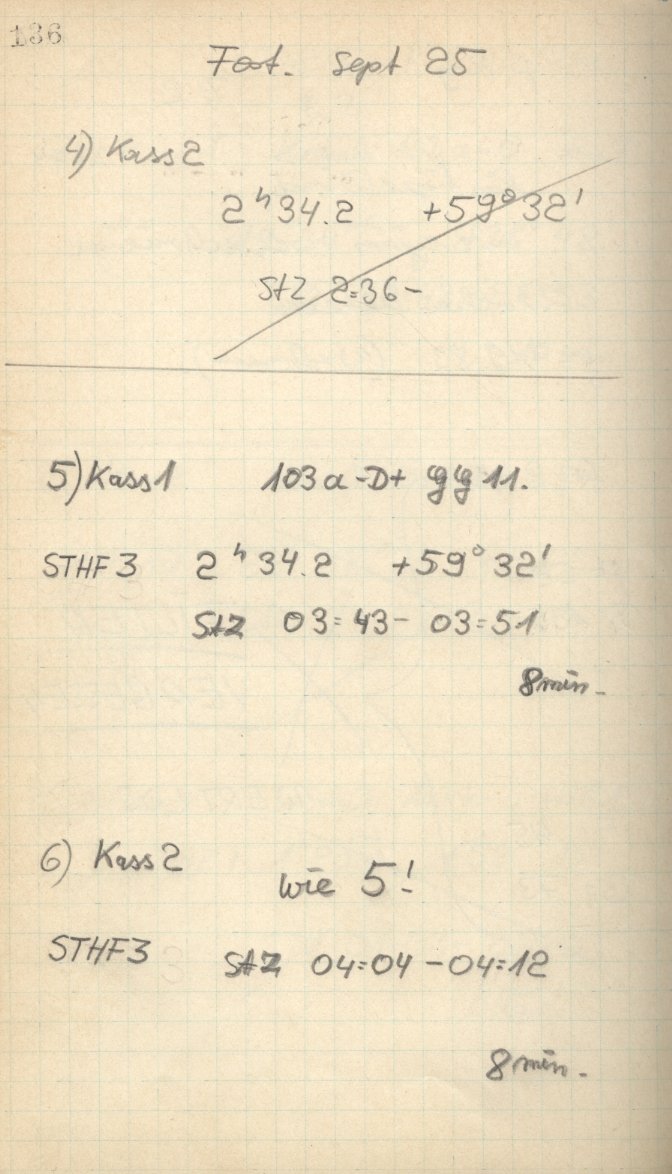 136
Fort. Sept 25
4) Kass 2
2ʰ34.2 +59° 32'
Stz 2=36 -
5) Kass 1 103a-D+ gg 11.
STHF 3 2ʰ34.2 +59° 32'
Stz 03=43 - 03=51
8 min.
6) Kass 2
wie 5!
STHF3 Stz 04=04 - 04=12
8 min.